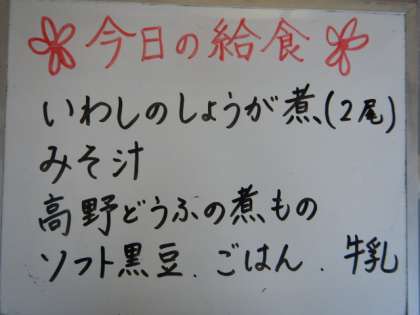 今日の給食
いわしのしょうが煮(2尾)
みそ汁
高野どうふの煮もの
ソフト黒豆．ごはん．牛乳